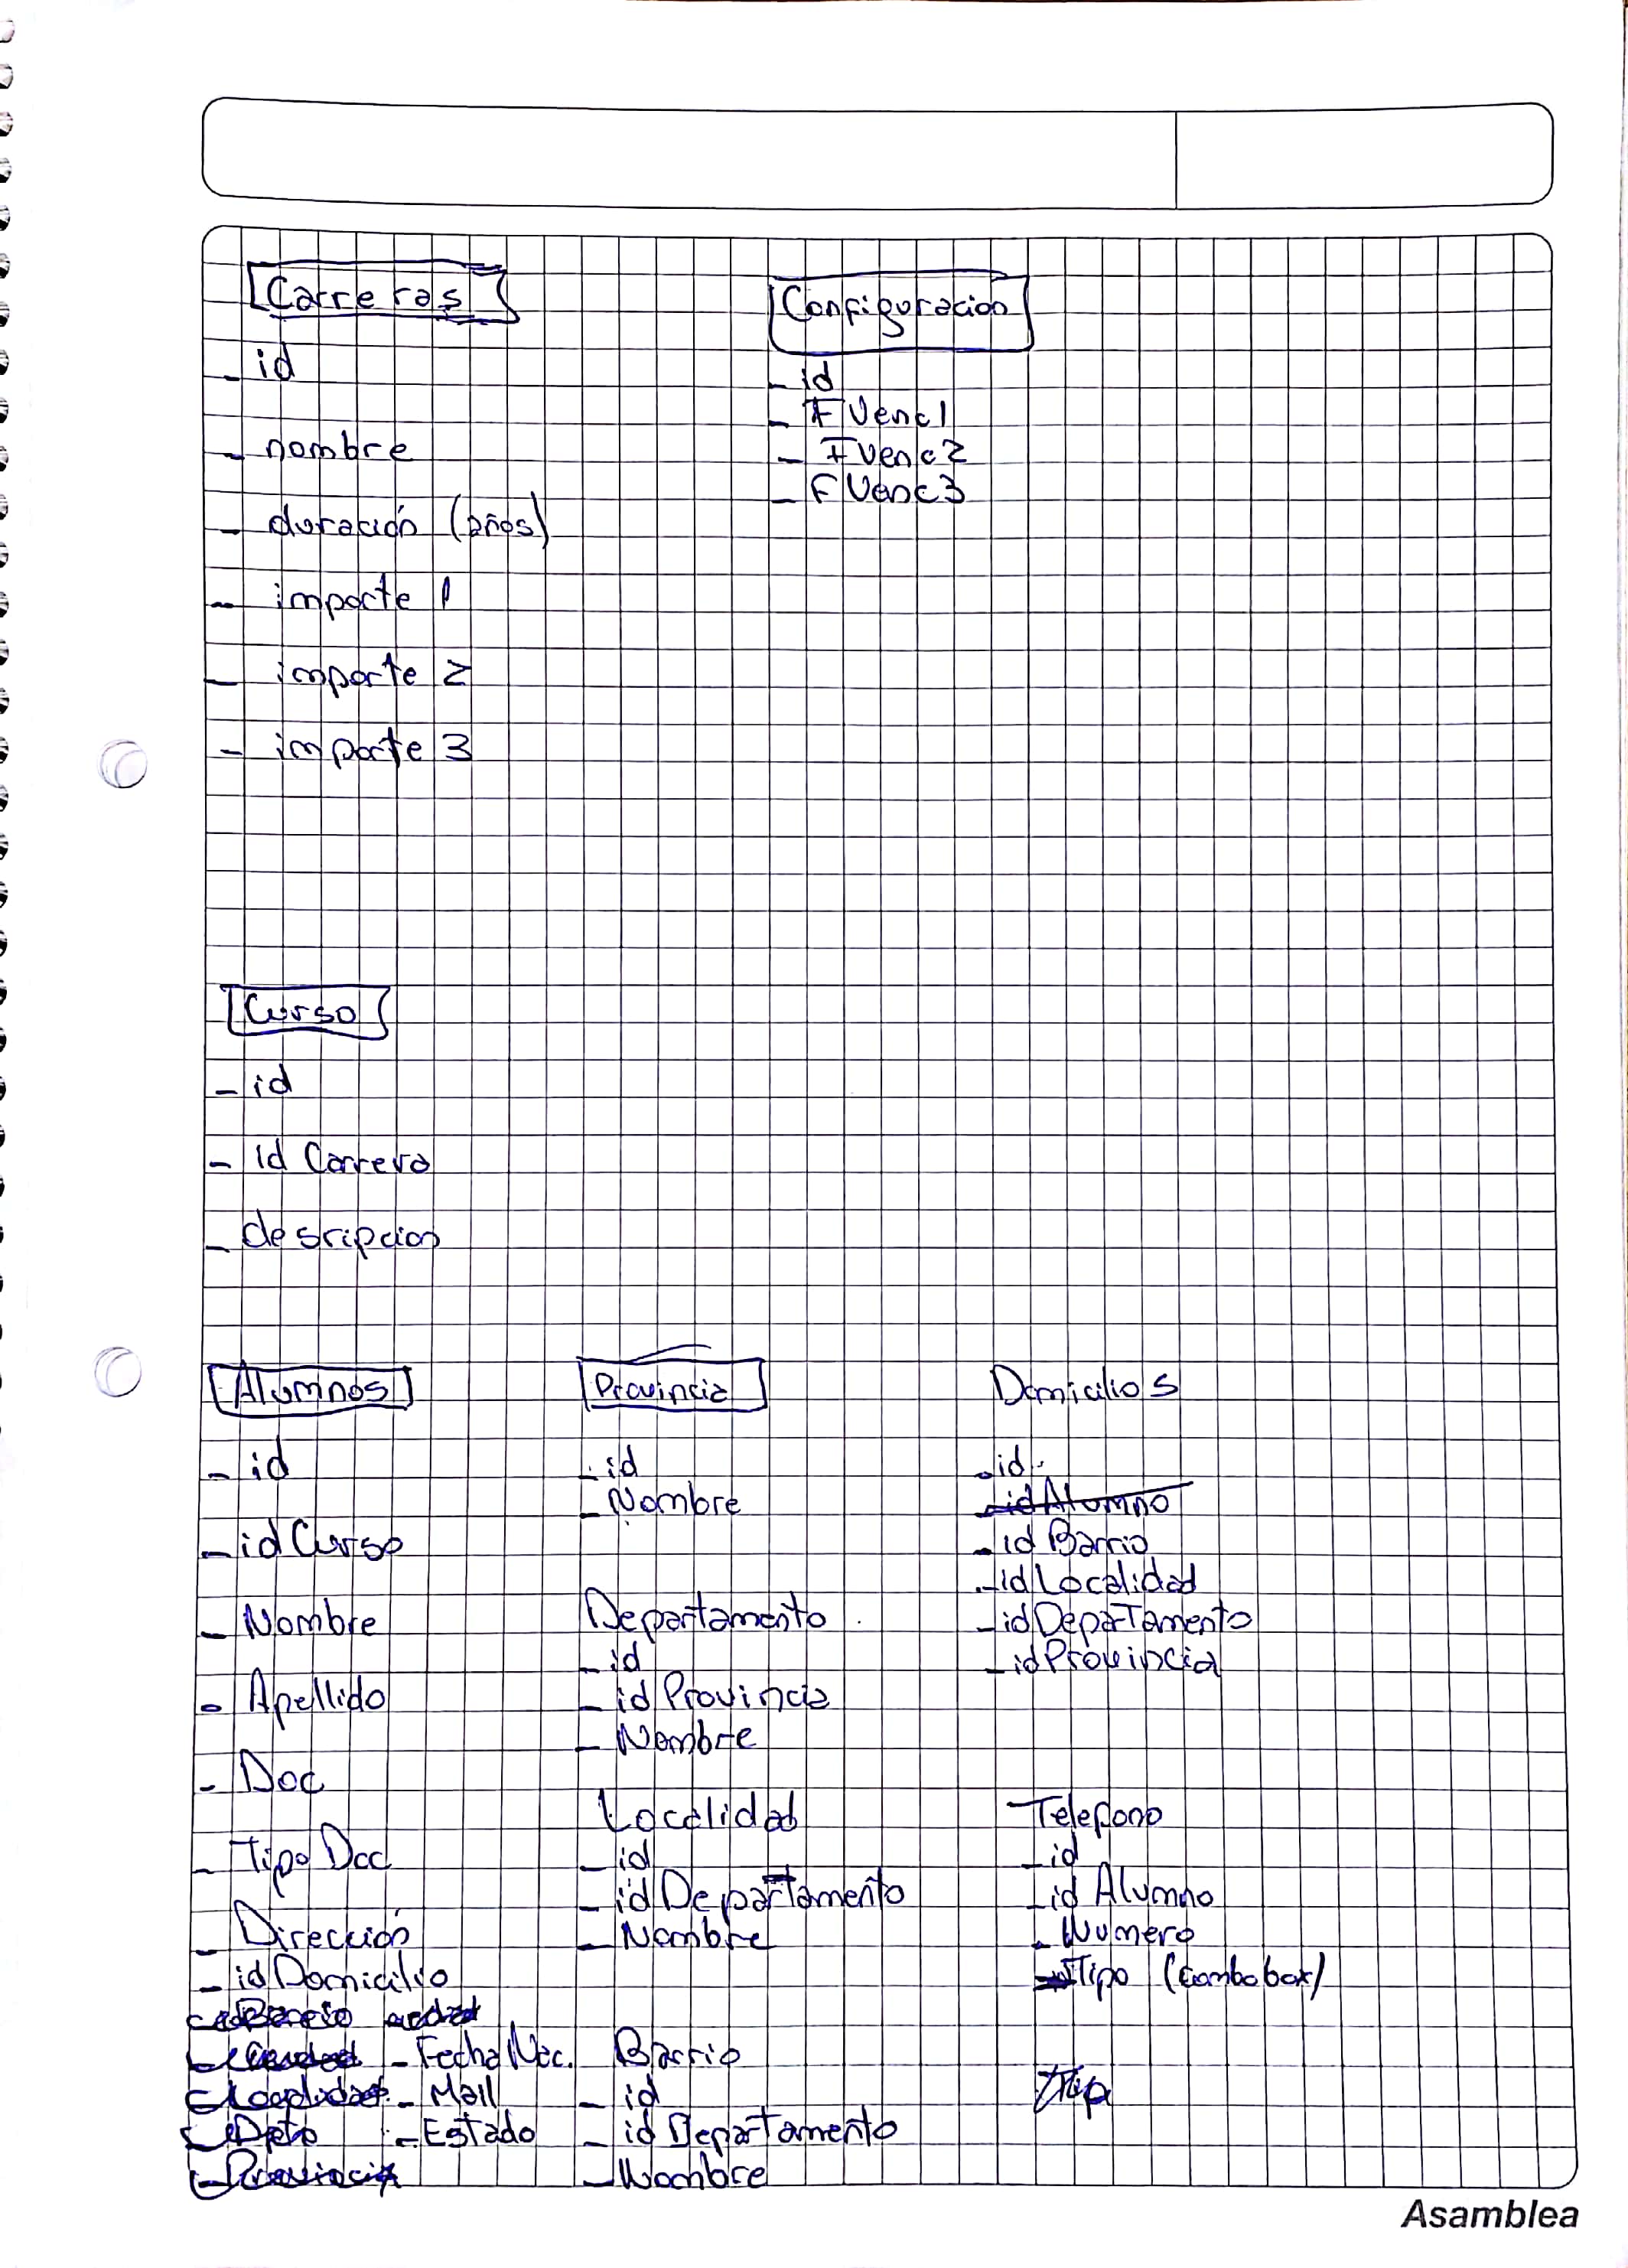 Carreras
- id
- nombre
- duración (años)
- importe 1
- importe 2
- importe 3
Configuracion
- id
- FVenc1
- FVenc2
- FVenc3
Curso
- id
- id Carrera
- desripcion
Alumnos
- id
- idCurso
- Nombre
- Apellido
- Doc
- Tipo Doc
- Dirección
- idDomicilio
- Localidad
- Dpto
- Provincia
- Fecha Nac.
- Mail
- Estado
Provincia
- id
- Nombre
Departamento
- id
- idProvincia
- Nombre
Localidad
- id
- idDepartamento
- Nombre
Barrio
- id
- idDepartamento
- Nombre
Domicilios
- id
- idAlumno
- id Barrio
- idLocalidad
- idDepartamento
- idProvincia
Telefono
- id
- id Alumno
- Numero
- Tipo (combobox)
Asamblea